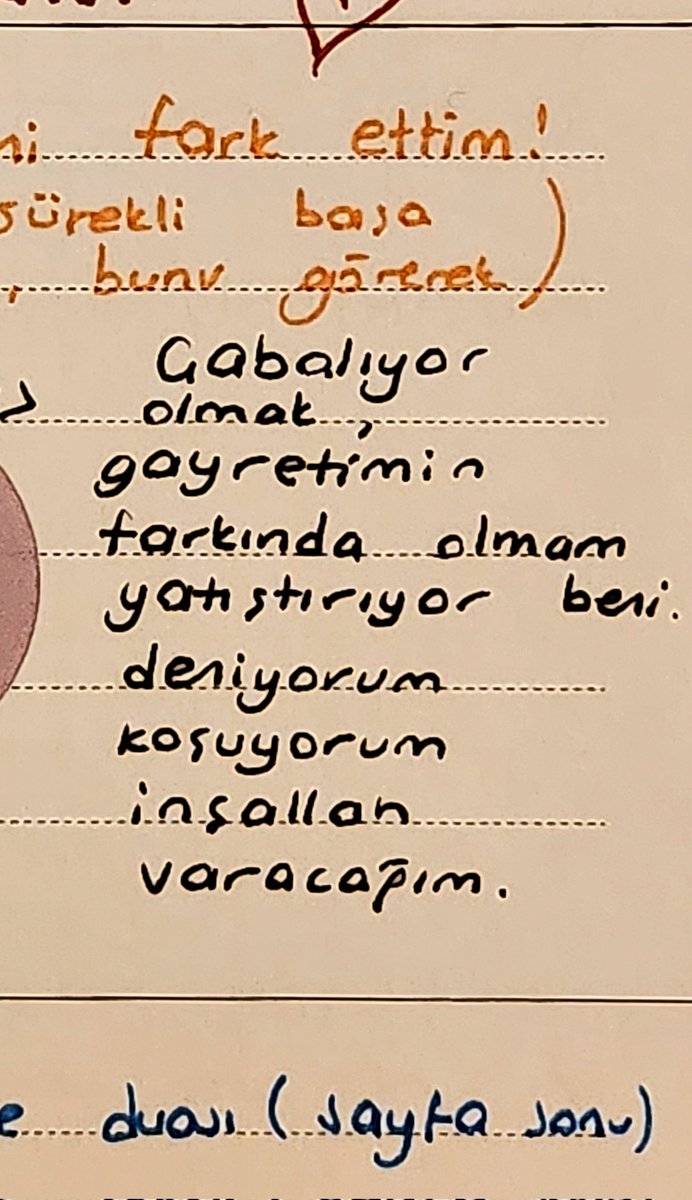 fark ettim!
sürekli başa
, bunu görerek)
Çabalıyor
olmak,
gayretimin
farkında olmam
yatıştırıyor beni.
deniyorum
koşuyorum
inşallah
varacağım.
duası (sayfa sonu)